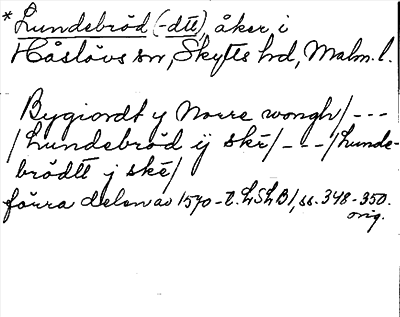 *Lundebröd (-dtt), åker i
Håslövs sn, Skytts hd, Malm. l.
Bygiordt y Norre wongh/---
/Lundebröd ij skē/---/Lunde-
brödtt j skē/
förra delen av 1570-t. LSLB1, ss. 348-350.
orig.